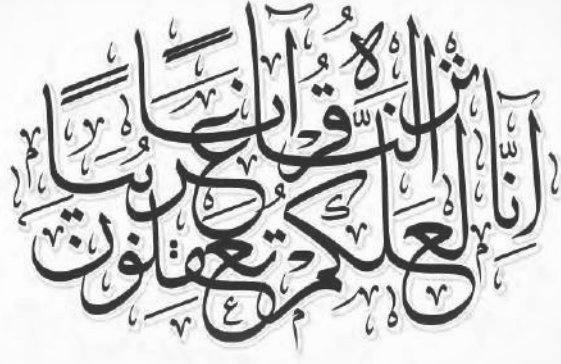 إنا أنزلناه قرآنا عربيا لعلكم تعقلون